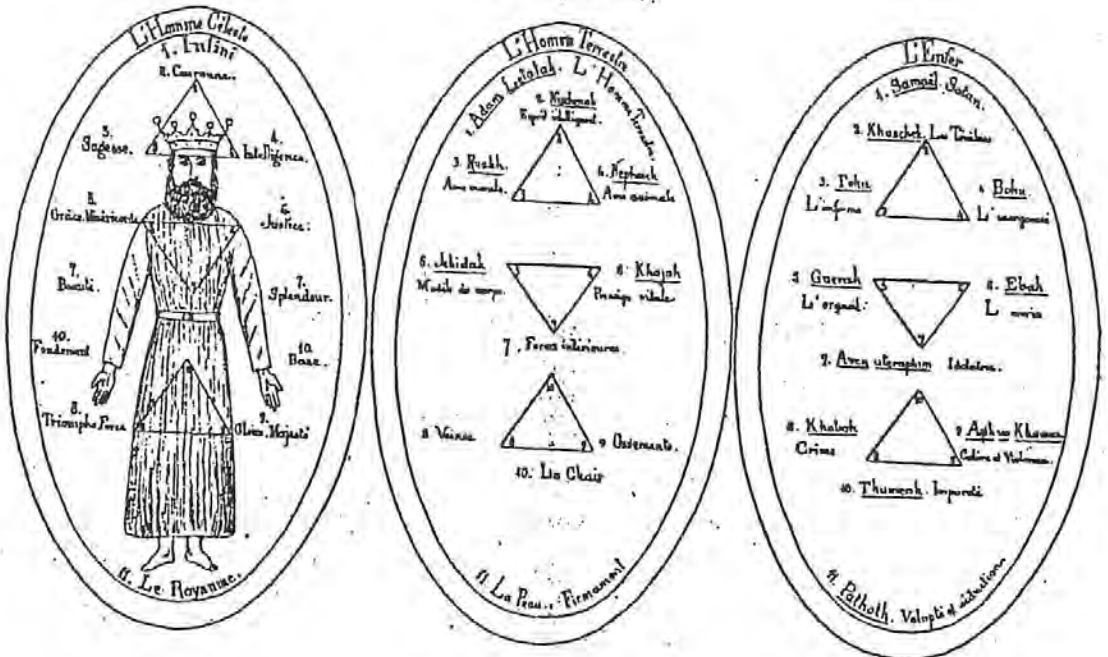 L'Homme Céleste
1. Infini
2. Couronne.
3.
Sagesse.
4.
Intelligence.
5.
Grâce. Miséricorde
6.
Justice:
7.
Beauté.
7.
Splendeur.
10.
Fondement
10.
Base.
8.
Triomphe Force
9.
Gloire. Majesté
11. Le Royaume.
L'Homme Terrestre
1. Adam L'Homme Terrestre.
2. Nischmah
Esprit intelligent.
3. Ruakh
Ame morale.
4. Nephesch
Ame animale
5. Jéhidah
6. Khajah
Principe vitale
7. Forces intérieures.
8 Veines
9 Ossements.
10. La Chair
11 La Peau. Firmament
L'Enfer
1. Samaël. Satan.
2. Khoschek. Les Ténèbres
3. Tohu
L'informe
4. Bohu
L'inorganisé
5 Guevah
L'orgueil.
6. Ebah
L
7. Aven uteraphim Idolatrie.
8. Khaboh
Crimes
9.
Colère et Violence.
10. Thumenh Impureté
11. Pathoth. Volupté et séduction